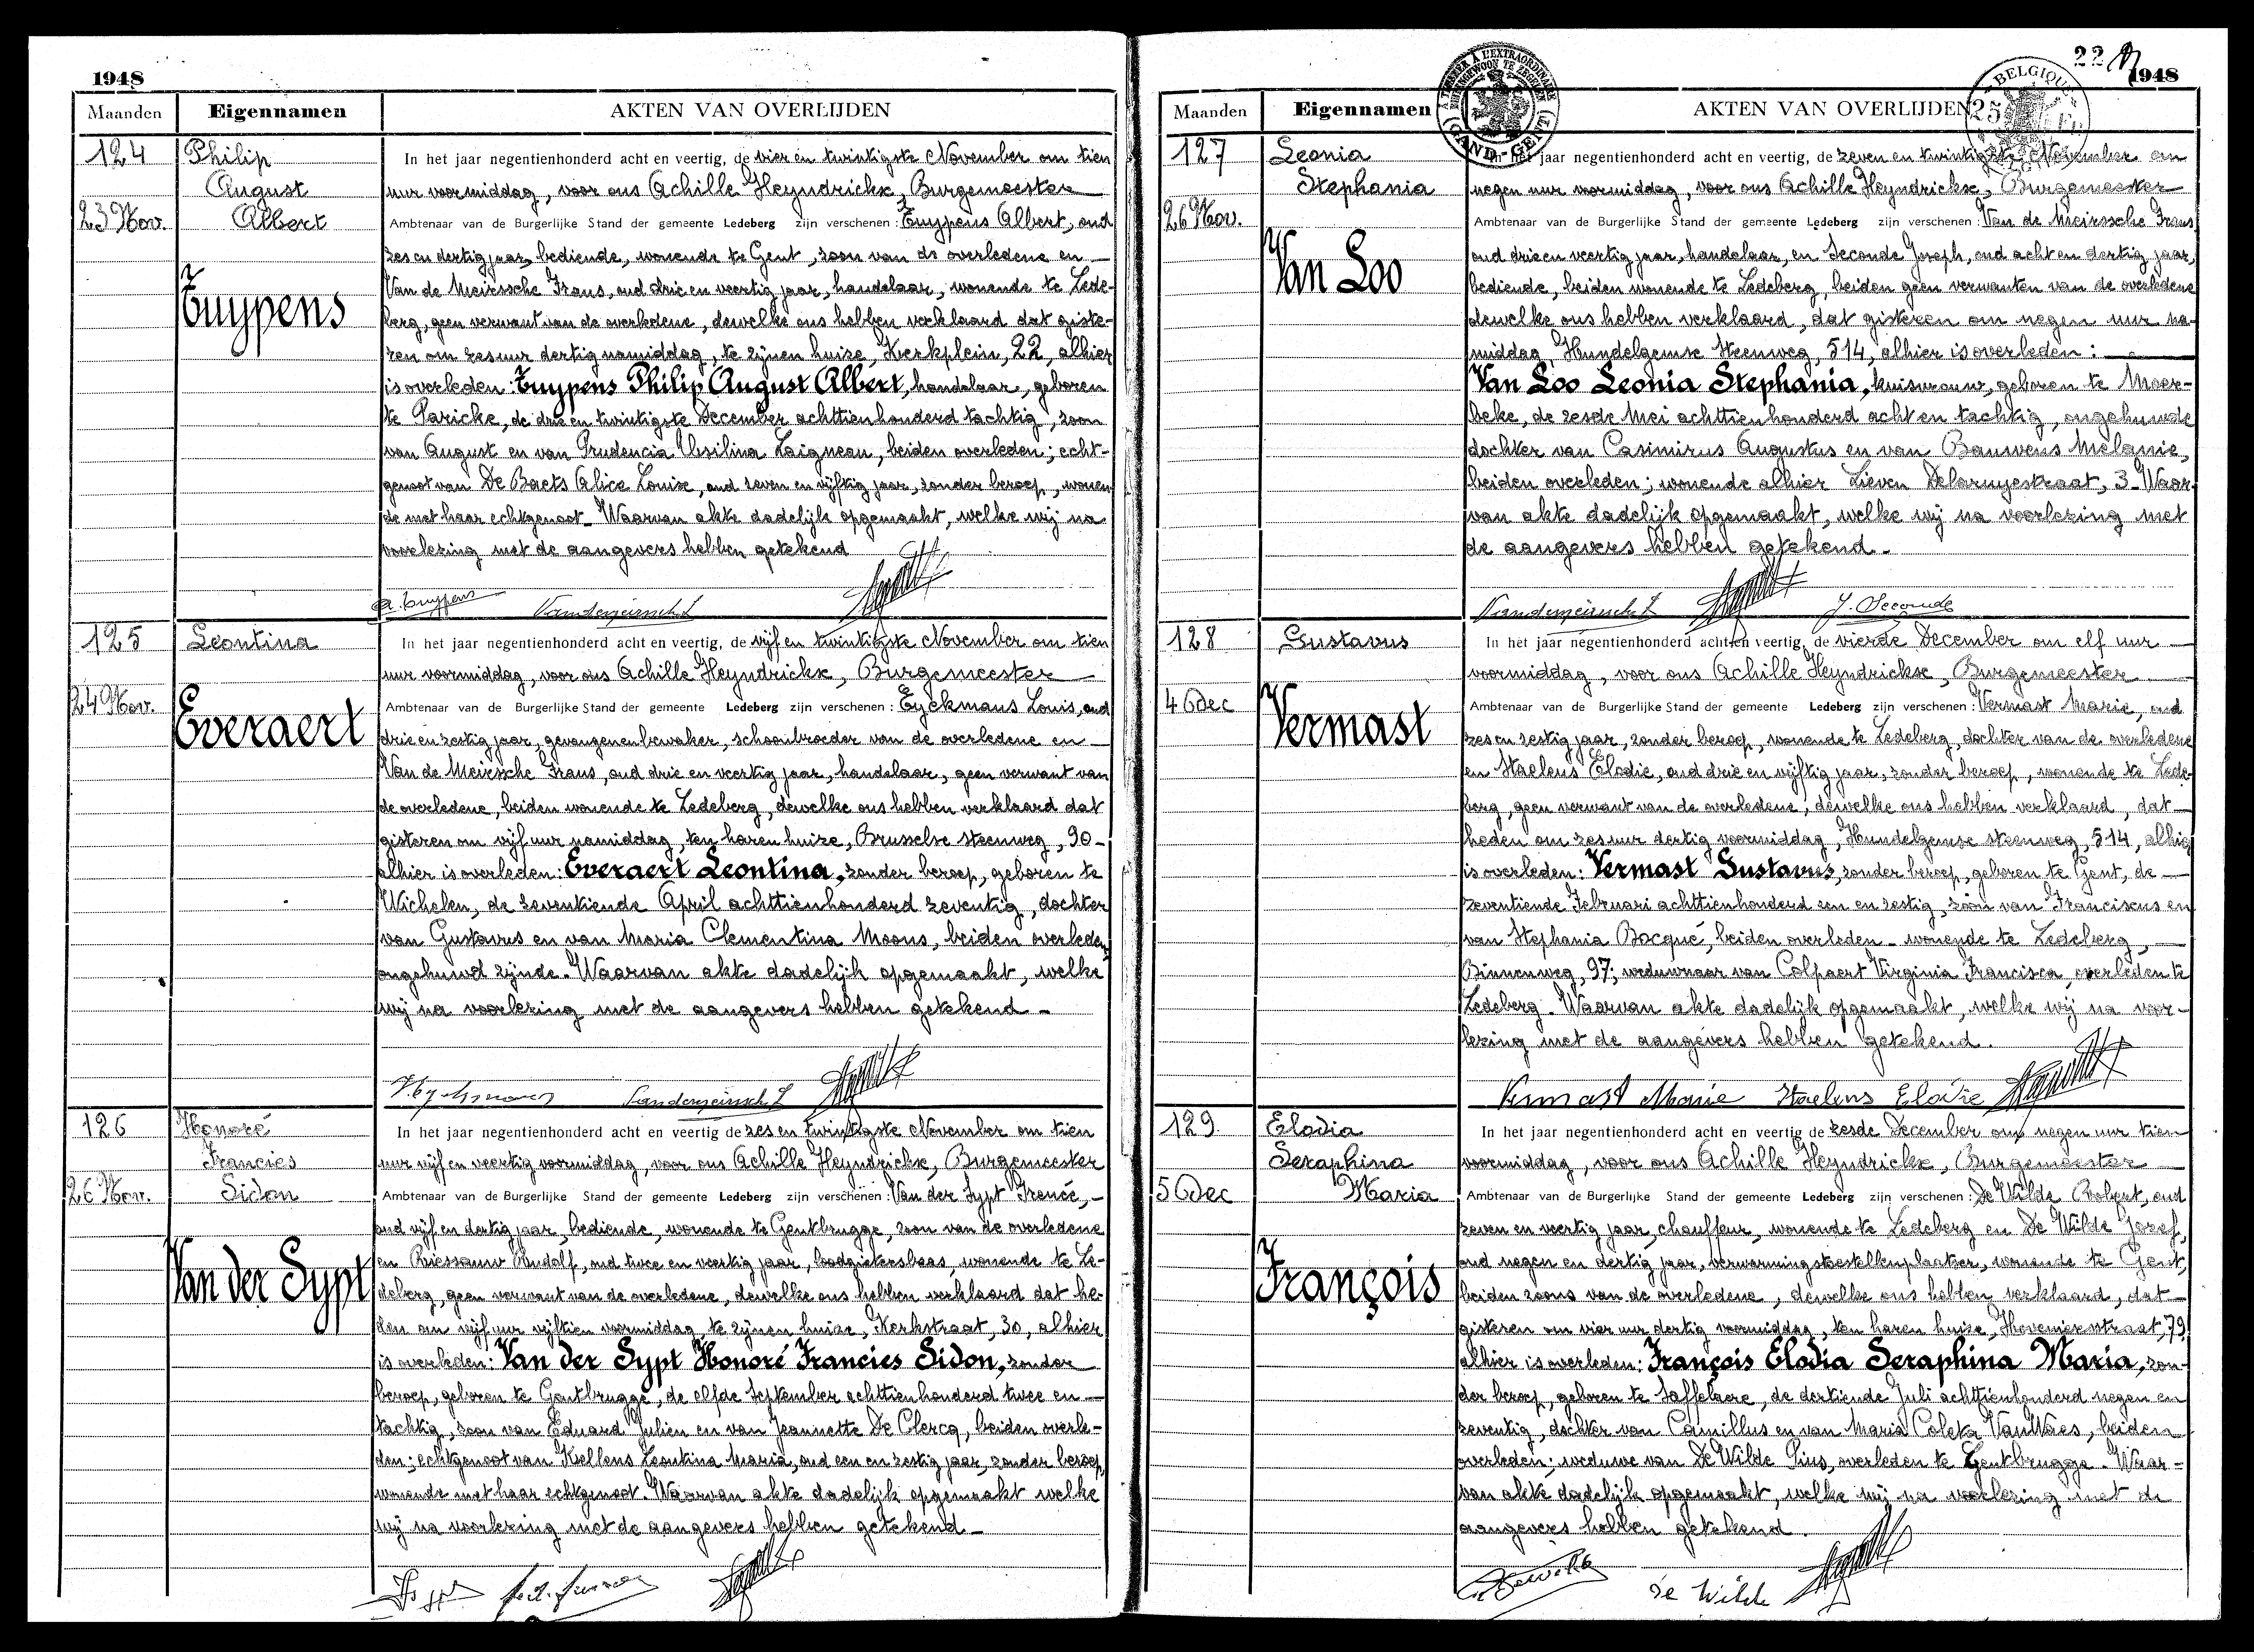 1948
Maanden Eigennamen AKTEN VAN OVERLIJDEN
124 Philip August Albert
23 Nov.
Tuypens
In het jaar negentienhonderd acht en veertig, de vier en twintigste November om tien
uur voormiddag, voor ons Achille Heyndrickx, Burgemeester
Ambtenaar van de Burgerlijke Stand der gemeente Ledeberg zijn verschenen: Tuypens Albert, oud
zes en dertig jaar, bediende, wonende te Gent, zoon van de overledene en
Van de Meirssche Frans, oud drie en veertig jaar, handelaar, wonende te Lede-
berg, geen verwant van de overledene, dewelke ons hebben verklaard dat giste-
ren om zes uur dertig namiddag, te zijnen huize, Kerkplein, 22, alhier
is overleden: Tuypens Philip August Albert, handelaar, geboren
te Paricke, de drie en twintigste December achttienhonderd tachtig, zoon
van August en van Prudencia Ursilina Laigneau, beiden overleden; echt-
genoot van De Baets Alice Louise, oud zeven en vijftig jaar, zonder beroep, wonen
de met haar echtgenoot. Waarvan akte dadelijk opgemaakt, welke wij na
voorlezing met de aangevers hebben getekend
A. Tuypens Vandemeirssche F
125 Leontina
24 Nov.
Everaert
In het jaar negentienhonderd acht en veertig, de vijf en twintigste November om tien
uur voormiddag, voor ons Achille Heyndrickx, Burgemeester
Ambtenaar van de Burgerlijke Stand der gemeente Ledeberg zijn verschenen: Eyckmans Louis, oud
drie en zestig jaar, gevangenenbewaker, schoonbroeder van de overledene en
Van de Meirssche Frans, oud drie en veertig jaar, handelaar, geen verwant van
de overledene, beiden wonende te Ledeberg, dewelke ons hebben verklaard dat
gisteren om vijf uur namiddag, ten haren huize, Brusselse steenweg, 90-
alhier is overleden: Everaert Leontina, zonder beroep, geboren te
Wichelen, de zeventiende April achttienhonderd zeventig, dochter
van Gustavus en van Maria Clementina Moons, beiden overleden,
ongehuwd zijnde. Waarvan akte dadelijk opgemaakt, welke
wij na voorlezing met de aangevers hebben getekend -
Vandemeirssche F
126 Honoré Francies Sidon
26 Nov.
Van der Sypt
In het jaar negentienhonderd acht en veertig de zes en twintigste November om tien
uur vijf en veertig voormiddag, voor ons Achille Heyndrickx, Burgemeester
Ambtenaar van de Burgerlijke Stand der gemeente Ledeberg zijn verschenen: Van der Sypt Irené, -
oud vijf en dertig jaar, bediende, wonende te Gentbrugge, zoon van de overledene
en Riessauw Rudolf, oud twee en veertig jaar, loodgietersbaas, wonende te Le-
deberg, geen verwant van de overledene, dewelke ons hebben verklaard dat he-
den om vijf uur vijftien voormiddag, te zijnen huize, Kerkstraat, 30, alhier
is overleden: Van der Sypt Honoré Francies Sidon, zonder
beroep, geboren te Gentbrugge, de elfde September achttienhonderd twee en
tachtig, zoon van Eduard Julien en van Jeannette De Clercq, beiden overle-
den; echtgenoot van Kellens Leontina Maria, oud een en zestig jaar, zonder beroep,
wonende met haar echtgenoot. Waarvan akte dadelijk opgemaakt welke
wij na voorlezing met de aangevers hebben getekend -
22
1948
A TIMBRER A L'EXTRAORDINAIRE
BUITENGEWOON TE ZEGELEN
(GAND-GENT)
BELGIQUE
25 Fr
Maanden Eigennamen AKTEN VAN OVERLIJDEN
127 Leonia Stephania
26 Nov.
Van Loo
In het jaar negentienhonderd acht en veertig, de zeven en twintigste November om
negen uur voormiddag, voor ons Achille Heyndrickx, Burgemeester
Ambtenaar van de Burgerlijke Stand der gemeente Ledeberg zijn verschenen: Van de Meirssche Frans
oud drie en veertig jaar, handelaar, en Seconde Joseph, oud acht en dertig jaar,
bediende, beiden wonende te Ledeberg, beiden geen verwanten van de overledene
dewelke ons hebben verklaard, dat gisteren om negen uur na-
middag, Hundelgemse steenweg, 514, alhier is overleden:
Van Loo Leonia Stephania, huisvrouw, geboren te Moer-
beke, de zesde Mei achttienhonderd acht en tachtig, ongehuwde
dochter van Casimirus Augustus en van Bauwens Melanie,
beiden overleden; wonende alhier Lieven Delaruyestraat, 3. Waar-
van akte dadelijk opgemaakt, welke wij na voorlezing met
de aangevers hebben getekend.
Vandemeirssche F J. Seconde
128 Gustavus
4 Dec
Vermast
In het jaar negentienhonderd acht en veertig, de vierde December om elf uur
voormiddag, voor ons Achille Heyndrickx, Burgemeester
Ambtenaar van de Burgerlijke Stand der gemeente Ledeberg zijn verschenen: Vermast Marie, oud
zes en zestig jaar, zonder beroep, wonende te Ledeberg, dochter van de overledene
en Staelens Elodie, oud drie en vijftig jaar, zonder beroep, wonende te Lede-
berg, geen verwant van de overledene; dewelke ons hebben verklaard, dat
heden om zes uur dertig voormiddag, Hundelgemse steenweg, 514, alhier
is overleden: Vermast Gustavus, zonder beroep, geboren te Gent, de
zeventiende Februari achttienhonderd een en zestig, zoon van Franciscus en
van Stephania Bocqué, beiden overleden - wonende te Ledeberg,
Binnenweg, 97; weduwnaar van Colpaert Virginia Francisca, overleden te
Ledeberg. Waarvan akte dadelijk opgemaakt, welke wij na voor-
lezing met de aangevers hebben getekend.
Vermast Marie Staelens Elodie
129 Elodia Seraphina Maria
5 Dec
François
In het jaar negentienhonderd acht en veertig de zesde December om negen uur tien
voormiddag, voor ons Achille Heyndrickx, Burgemeester
Ambtenaar van de Burgerlijke Stand der gemeente Ledeberg zijn verschenen: De Wilde Robert, oud
zeven en veertig jaar, chauffeur, wonende te Ledeberg en De Wilde Jozef,
oud negen en dertig jaar, verwarmingstoestellenplaatser, wonende te Gent,
beiden zoons van de overledene, dewelke ons hebben verklaard, dat
gisteren om vier uur dertig voormiddag, ten haren huize, Hoveniersstraat, 79,
alhier is overleden: François Elodia Seraphina Maria, zon-
der beroep, geboren te Saffelaere, de dertiende Juli achttienhonderd negen en
zeventig, dochter van Camillus en van Maria Coleta VanWaes, beiden
overleden; weduwe van De Wilde Pius, overleden te Gentbrugge. Waar-
van akte dadelijk opgemaakt, welke wij na voorlezing met de
aangevers hebben getekend.
De Wilde